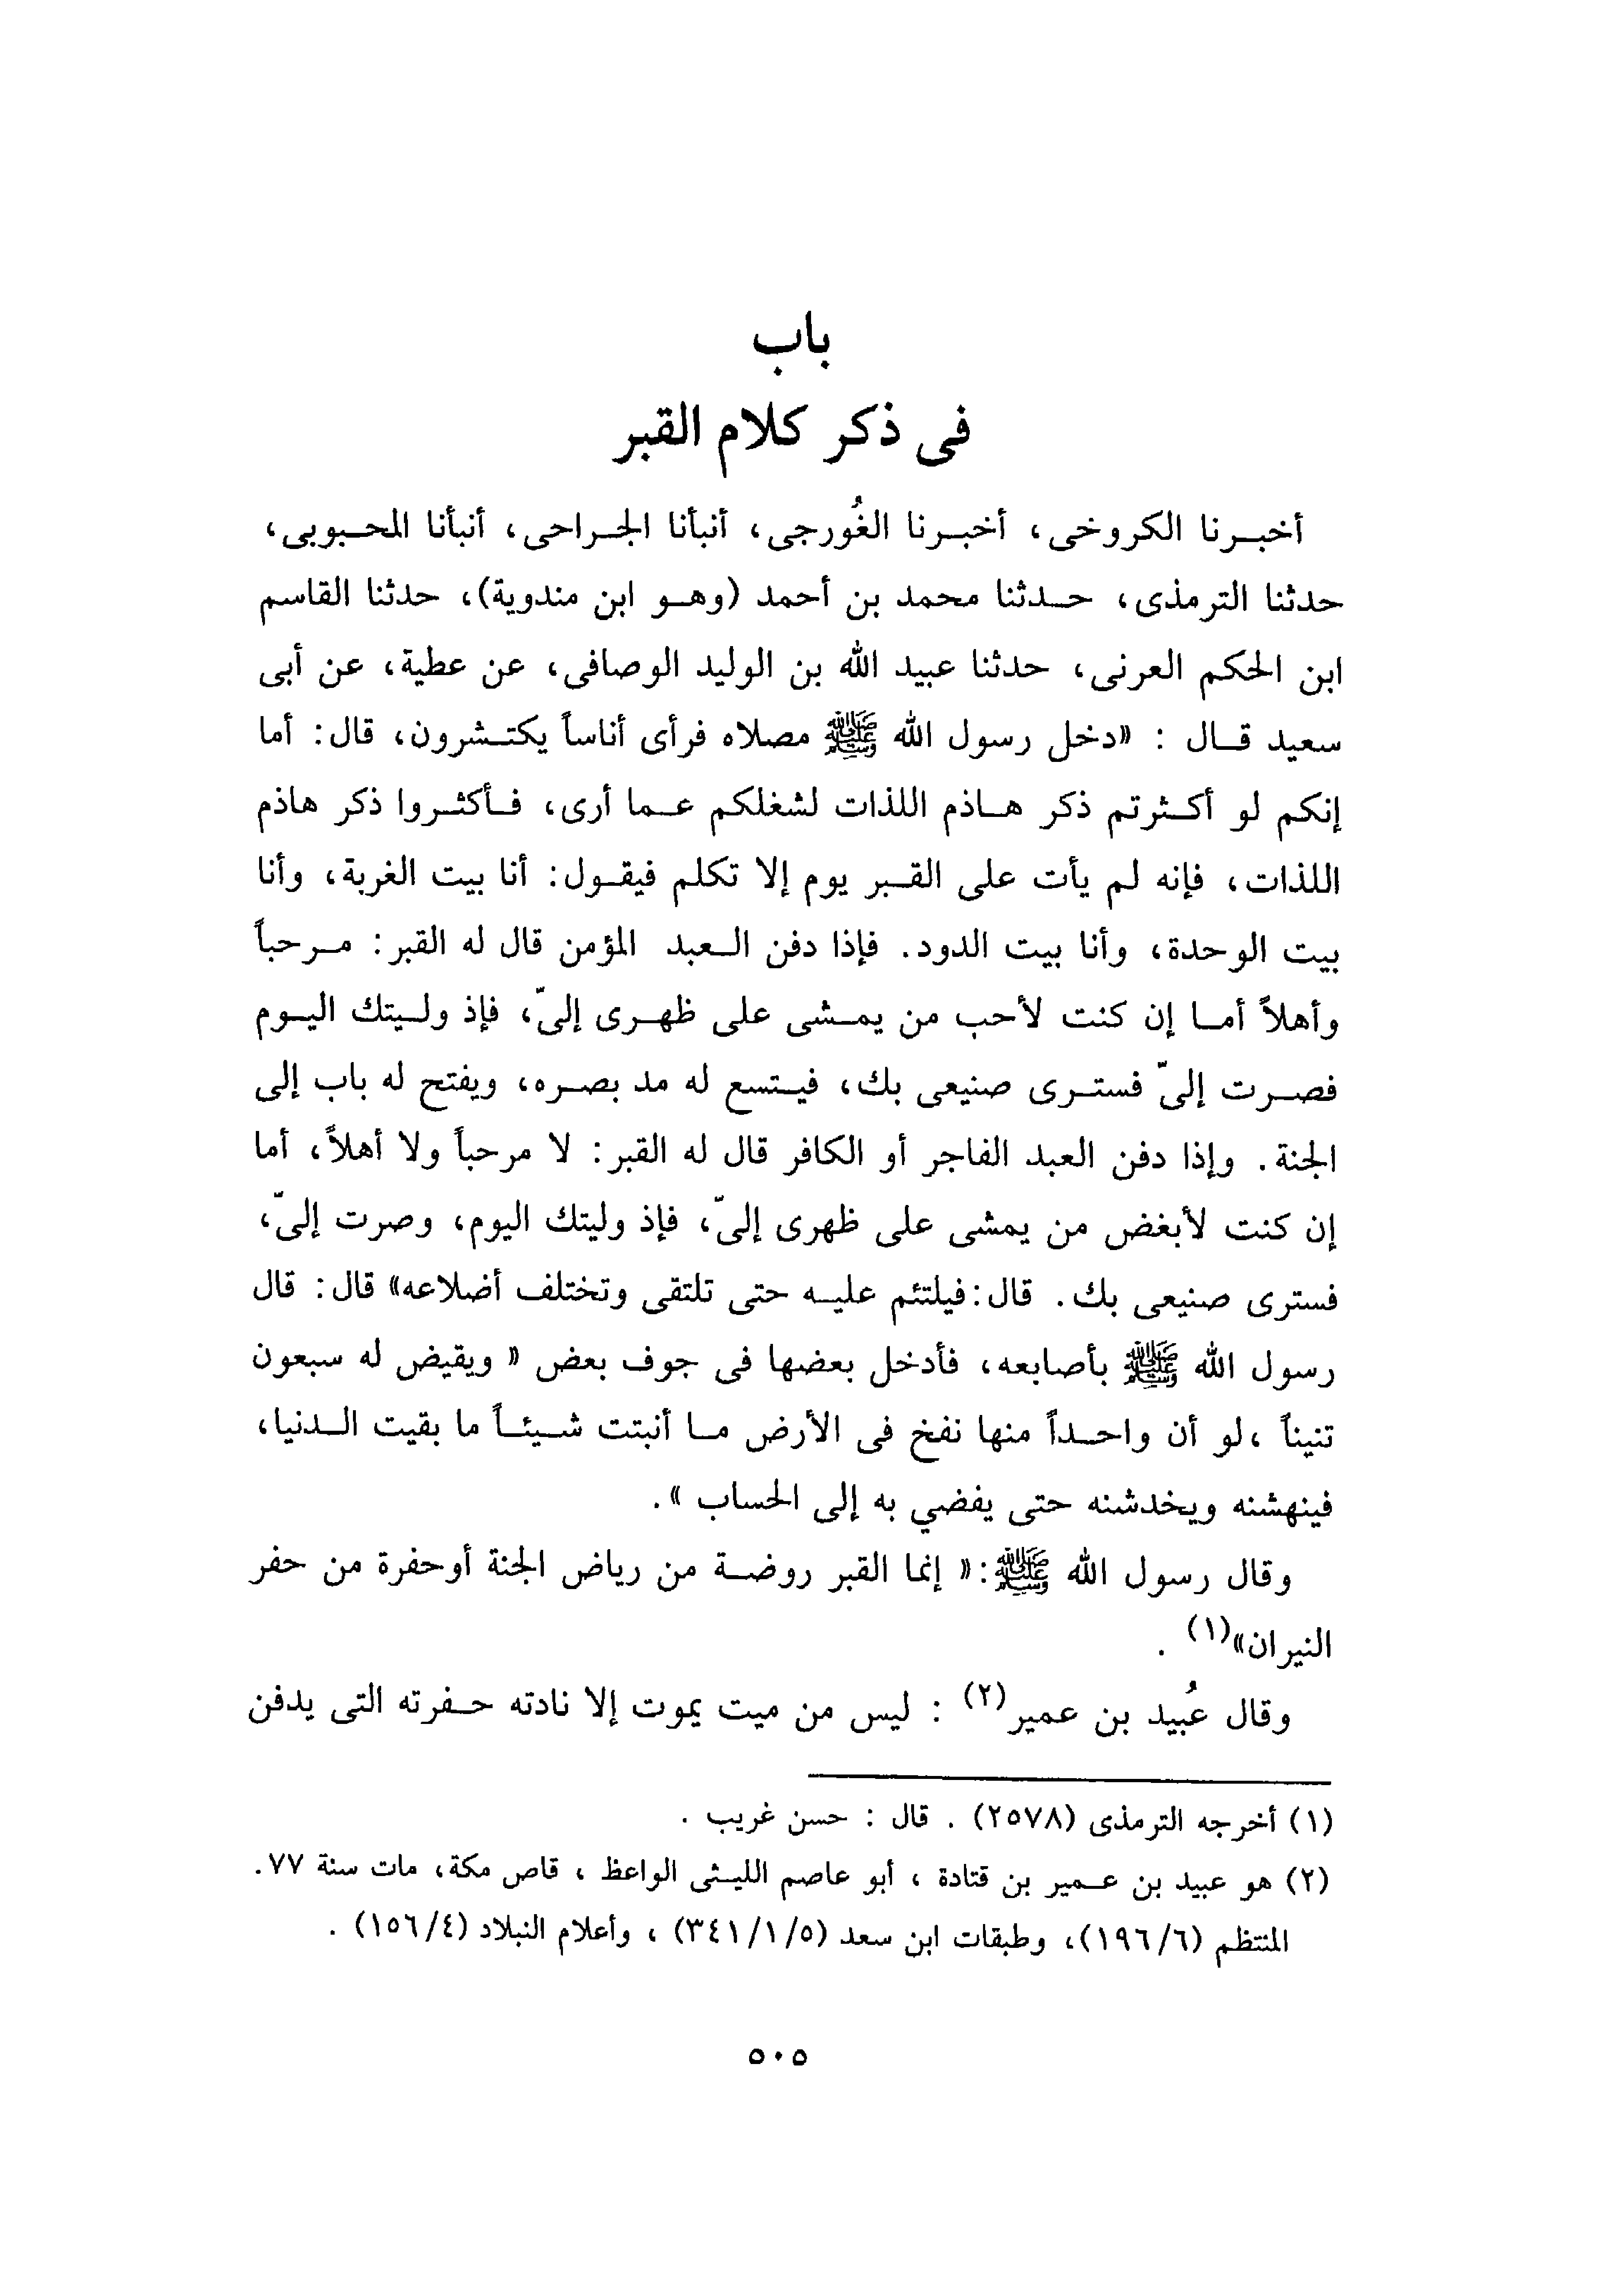 باب
فى ذكر كلام القبر
أخبرنا الكروخى، أخبرنا الغُورجى، أنبأنا الجراحى، أنبأنا المحبوبى،
حدثنا الترمذى، حدثنا محمد بن أحمد (وهو ابن مندوية)، حدثنا القاسم
ابن الحكم العرنى، حدثنا عبيد الله بن الوليد الوصافى، عن عطية، عن أبى
سعيد قال : «دخل رسول الله ﷺ مصلاه فرأى أناساً يكتشرون، قال: أما
إنكم لو أكثرتم ذكر هاذم اللذات لشغلكم عما أرى، فأكثروا ذكر هاذم
اللذات، فإنه لم يأت على القبر يوم إلا تكلم فيقول: أنا بيت الغربة، وأنا
بيت الوحدة، وأنا بيت الدود. فإذا دفن العبد المؤمن قال له القبر: مرحباً
وأهلاً أما إن كنت لأحب من يمشى على ظهرى إلىّ، فإذ وليتك اليوم
فصرت إلىّ فسترى صنيعى بك، فيتسع له مد بصره، ويفتح له باب إلى
الجنة. وإذا دفن العبد الفاجر أو الكافر قال له القبر: لا مرحباً ولا أهلاً، أما
إن كنت لأبغض من يمشى على ظهرى إلىّ، فإذ وليتك اليوم، وصرت إلىّ،
فسترى صنيعى بك. قال: فيلتئم عليه حتى تلتقى وتختلف أضلاعه» قال: قال
رسول الله ﷺ بأصابعه، فأدخل بعضها فى جوف بعض « ويقيض له سبعون
تنيناً ،لو أن واحداً منها نفخ فى الأرض ما أنبتت شيئاً ما بقيت الدنيا،
فينهشنه ويخدشنه حتى يفضي به إلى الحساب ».
وقال رسول الله ﷺ:« إنما القبر روضة من رياض الجنة أوحفرة من حفر
النيران»(١) .
وقال عُبيد بن عمير(٢) : ليس من ميت يموت إلا نادته حفرته التى يدفن
(١) أخرجه الترمذى (٢٥٧٨) . قال : حسن غريب .
(٢) هو عبيد بن عمير بن قتادة ، أبو عاصم الليثى الواعظ ، قاص مكة، مات سنة ٧٧.
المنتظم (١٩٦/٦)، وطبقات ابن سعد (٣٤١/١/٥) ، وأعلام النبلاد (١٥٦/٤) .
٥٠٥